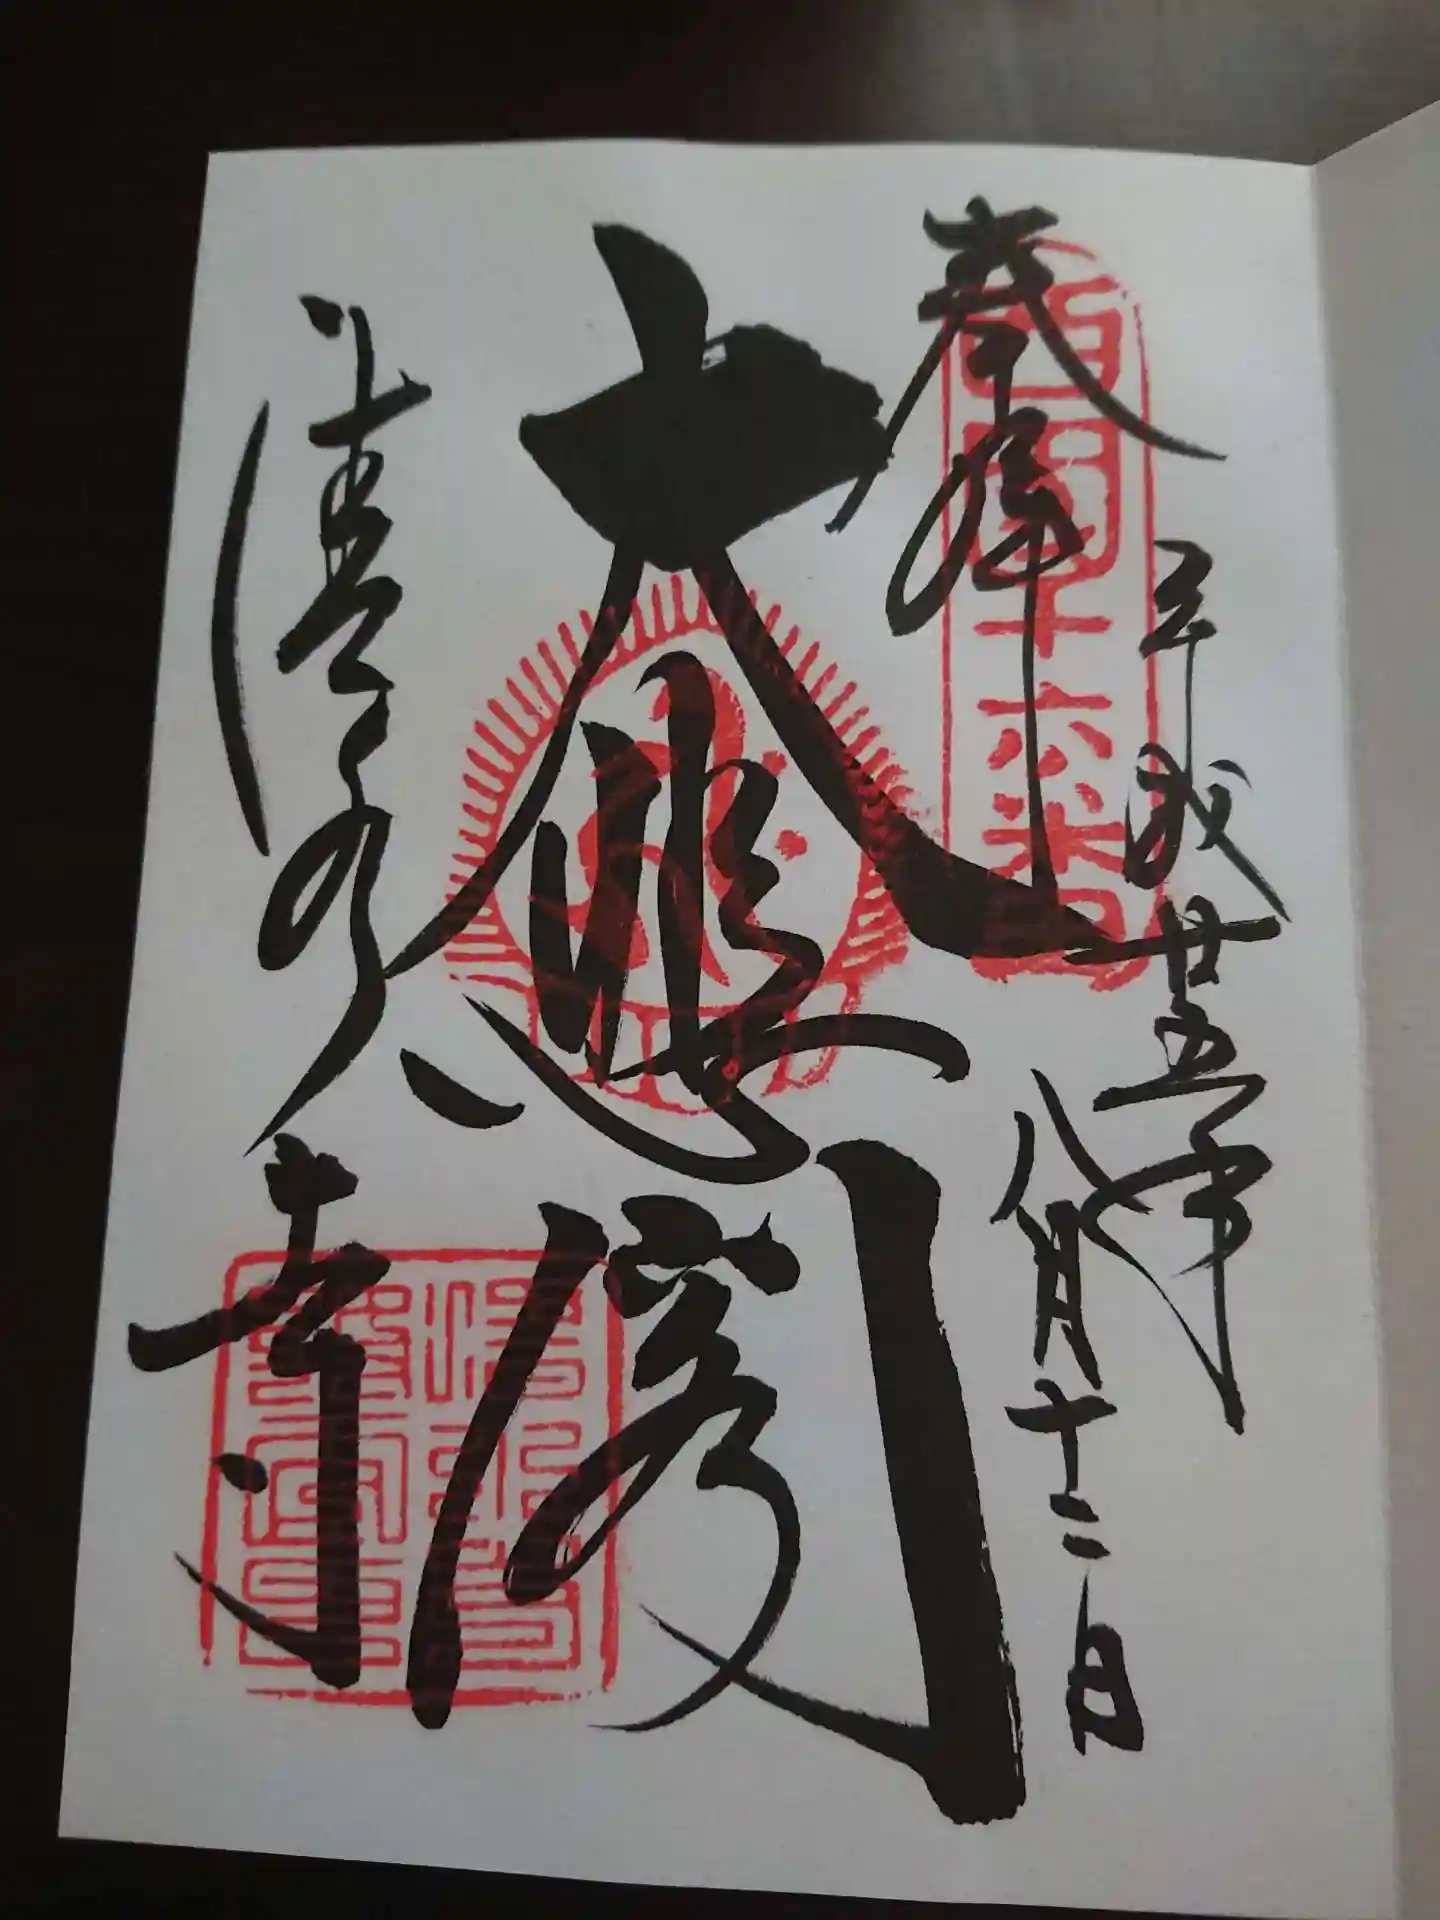 奉拝
西国十六番
平成廿五年
八月十二日
大悲閣
清水寺